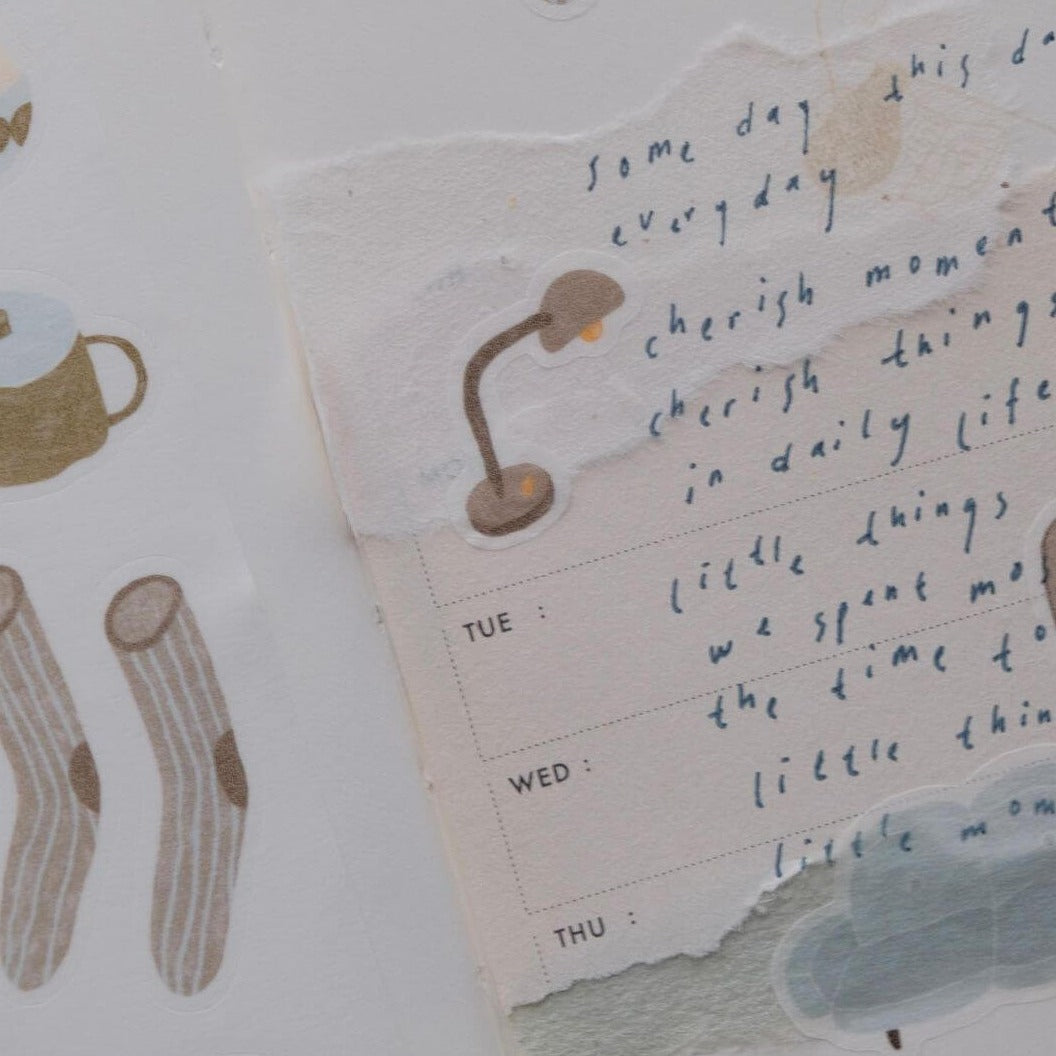 some day this da
everyday
cherish moment
cherish things
in daily life
little things
TUE :
we spent mo
the time to
WED :
little thin
little mom
THU :